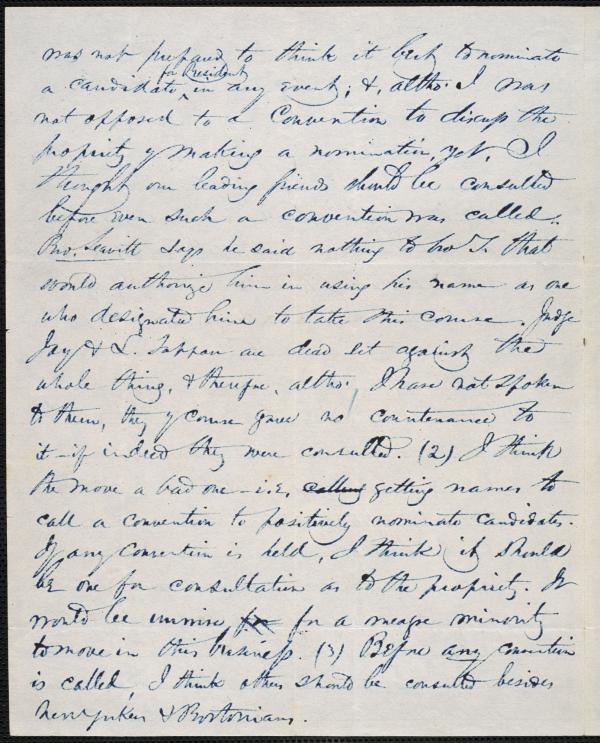 was not prepared to think it best to nominate
a candidate, ^for President^ in any event; &, altho. I was
not opposed to a Convention to discuss the
propriety of making a nomination, yet, I
thought our leading friends should be consulted
before even such a convention was called.
Bro. Leavitt says he said nothing to bro T. that
would authorize him in using his name as one
who designated him to take this course. Judge
Jay & L. Tappan are dead set against the
whole thing, & therefore, altho. I have not spoken
to them, they of course gave no countenance to
it – if indeed they were consulted. (2) I think
the move a bad one – i.e., calling getting names to
call a convention to positively nominate candidates.
If any Convention is held, I think it should
be one for consultation as to the propriety. It
would be unwise, for for a meagre minority
to move in this business. (3) Before any convention
is called, I think others should be consulted besides
New Yorkers & Bostonians.